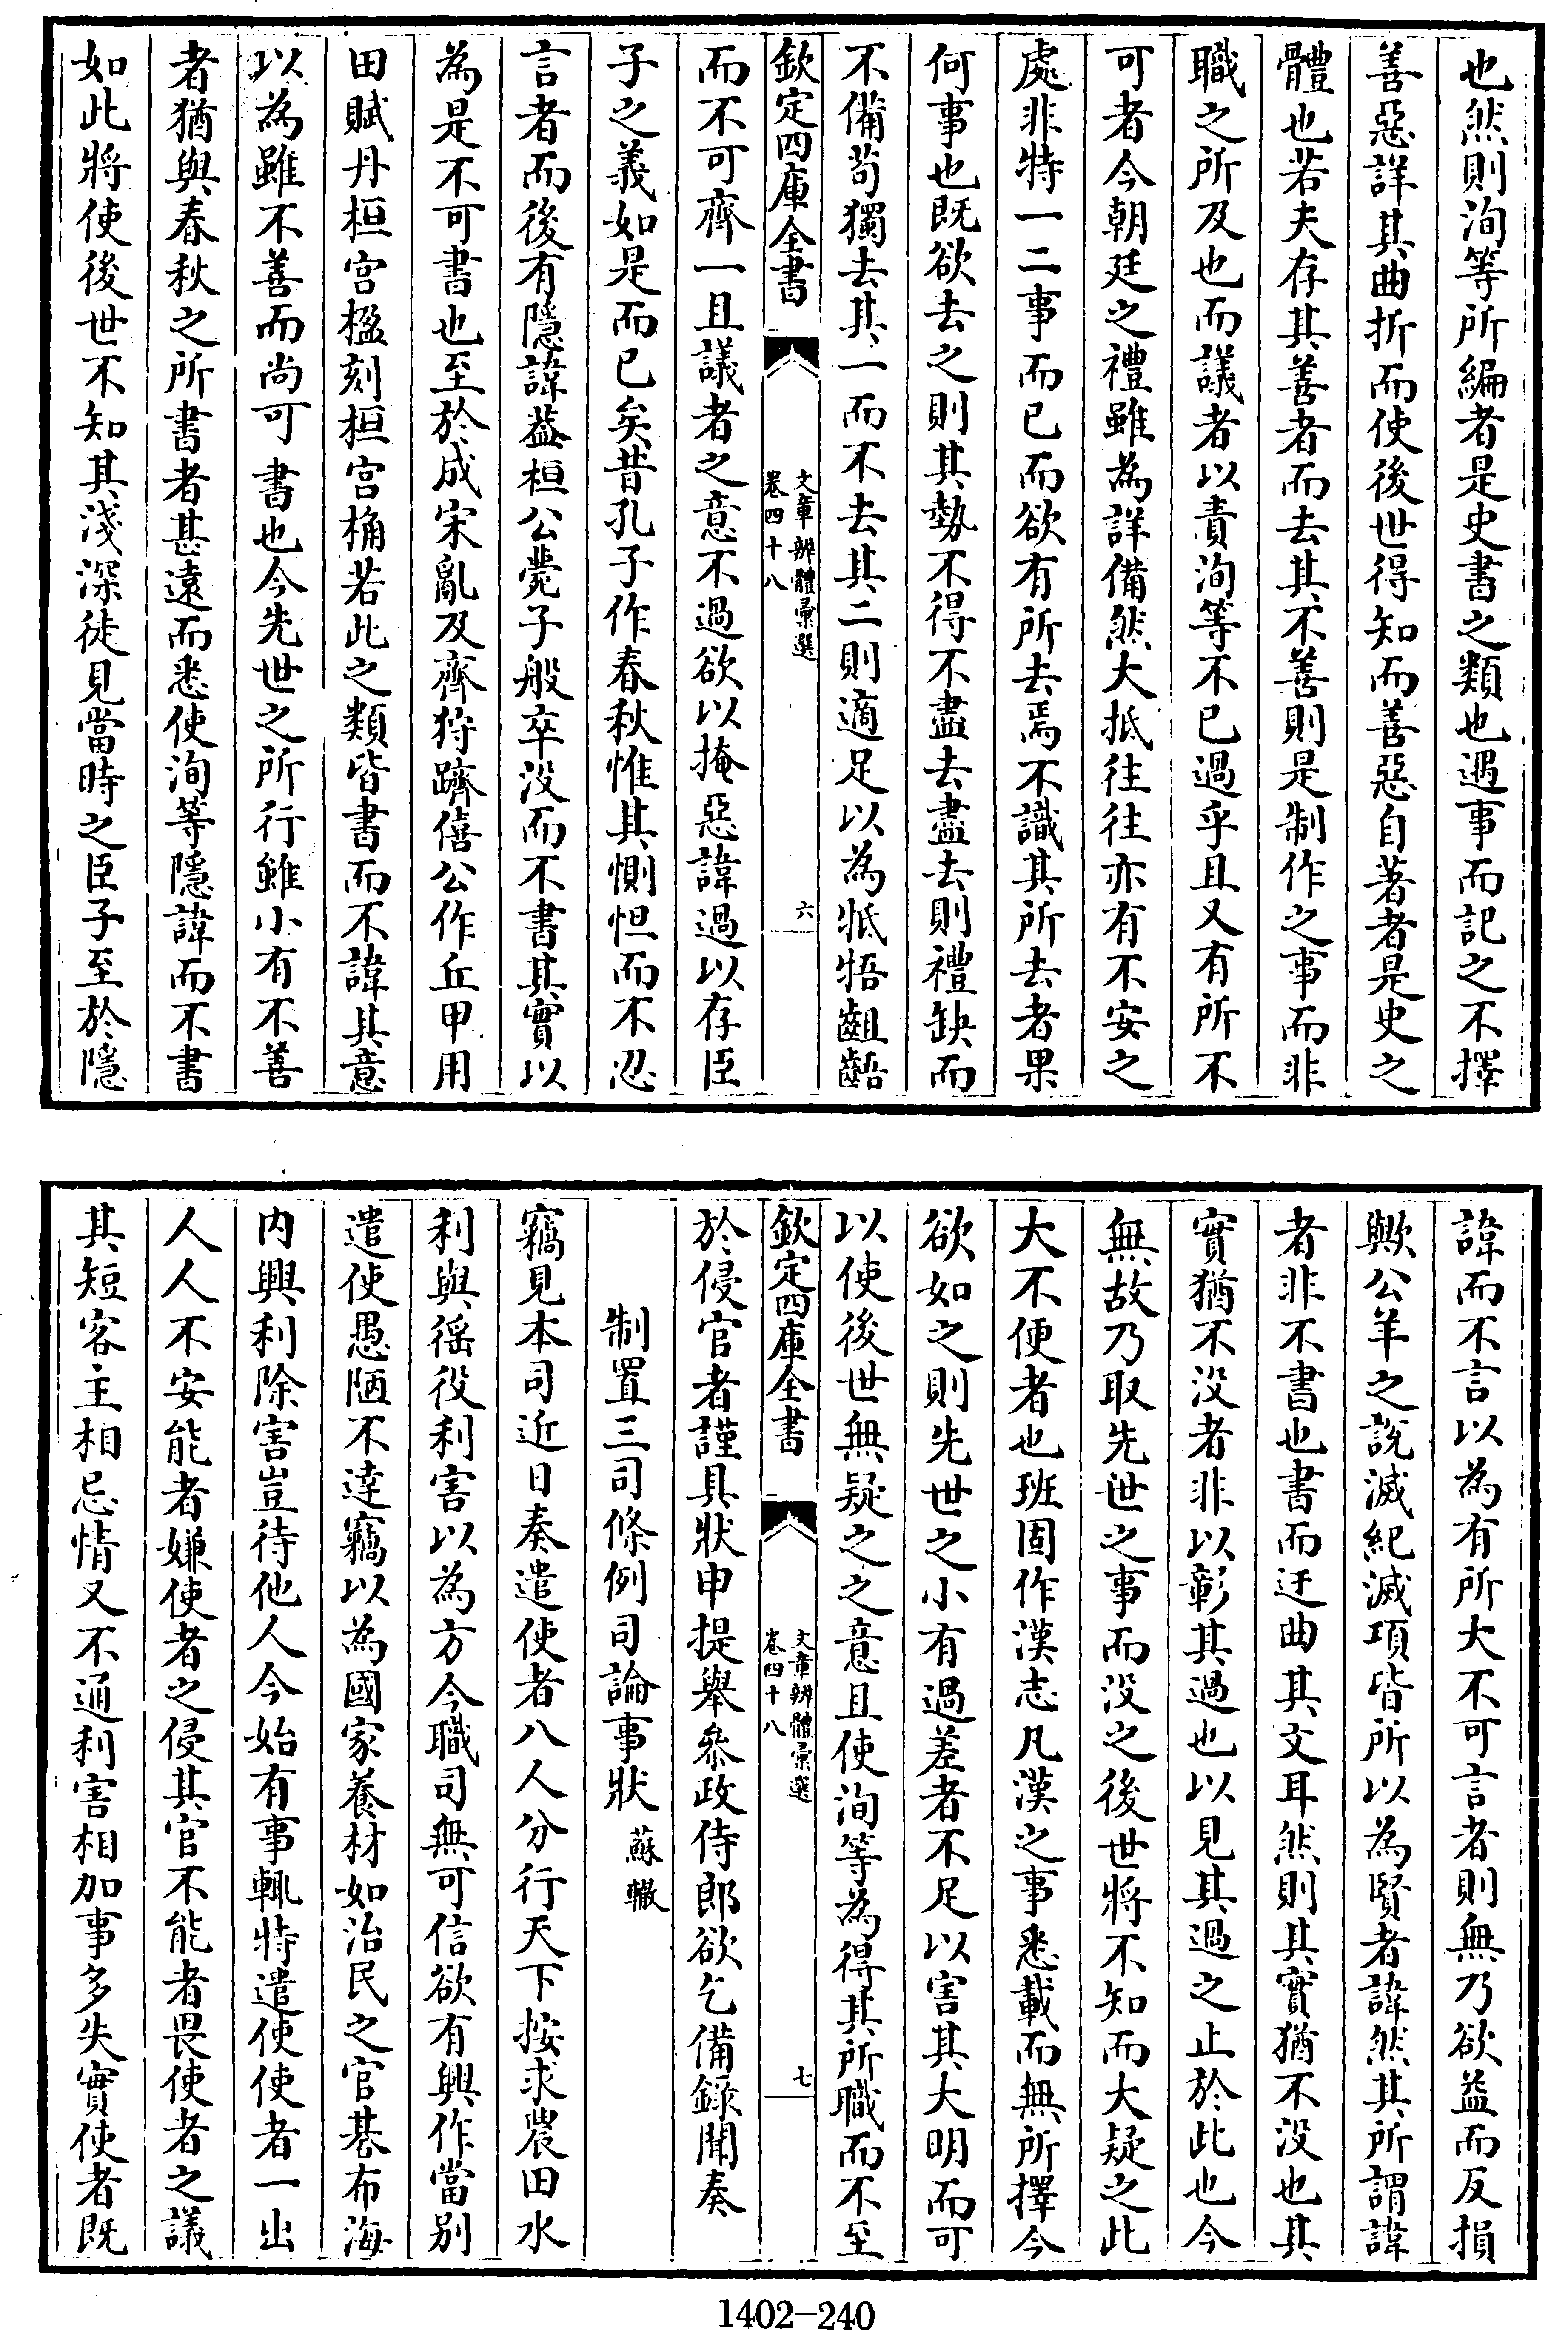 也然則洵等所編者是史書之類也遇事而記之不擇
善惡詳其曲折而使後世得知而善惡自著者是史之
體也若夫存其善者而去其不善則是制作之事而非
職之所及也而議者以責洵等不已過乎且又有所不
可者今朝廷之禮雖為詳備然大抵往往亦有不安之
處非特一二事而已而欲有所去焉不識其所去者果
何事也既欲去之則其勢不得不盡去盡去則禮缺而
不備苟獨去其一而不去其二則適足以為牴牾齟齬
欽定四庫全書
文章辨體彙選
卷四十八
六
而不可齊一且議者之意不過欲以掩惡諱過以存臣
子之義如是而已矣昔孔子作春秋惟其惻怛而不忍
言者而後有隱諱葢桓公薨子般卒没而不書其實以
為是不可書也至於成宋亂及齊狩躋僖公作丘甲用
田賦丹桓宫楹刻桓宫桷若此之類皆書而不諱其意
以為雖不善而尚可書也今先世之所行雖小有不善
者猶與春秋之所書者甚遠而悉使洵等隱諱而不書
如此將使後世不知其淺深徒見當時之臣子至於隱
諱而不言以為有所大不可言者則無乃欲益而反損
歟公羊之説滅紀滅項皆所以為賢者諱然其所謂諱
者非不書也書而迂曲其文耳然則其實猶不没也其
實猶不没者非以彰其過也以見其過之止於此也今
無故乃取先世之事而没之後世將不知而大疑之此
大不便者也班固作漢志凡漢之事悉載而無所擇今
欲如之則先世之小有過差者不足以害其大明而可
以使後世無疑之之意且使洵等為得其所職而不至
欽定四庫全書
文章辨體彙選
卷四十八
七
於侵官者謹具狀申提舉叅政侍郎欲乞備錄聞奏
制置三司條例司論事狀 蘇轍
竊見本司近日奏遣使者八人分行天下按求農田水
利與徭役利害以為方今職司無可信欲有興作當别
遣使愚陋不達竊以為國家養材如治民之官棊布海
内興利除害豈待他人今始有事輒特遣使使者一出
人人不安能者嫌使者之侵其官不能者畏使者之議
其短客主相忌情又不通利害相加事多失實使者既
1402-240